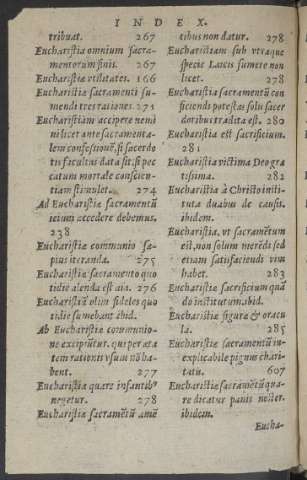 INDEX.
tribuat. 267
Eucharistia omnium sacra-
mentorum finis. 267
Eucharistiæ vtilitates. 166
Eucharistiæ sacramenti su-
mendi tres rationes. 271
Eucharistiam accipere nemi
ni licet ante sacramenta-
lem confessionē, si sacerdo
tis facultas data sit, si pec
catum mortale conscien-
tiam stimulet. 274
Ad Eucharistiæ sacramentū
ieiuni accedere debemus.
238
Eucharistiæ communio sæ-
pius iteranda. 275
Eucharistiæ sacramento quo
tidie alenda est aīa. 276
Eucharistiā olim fideles quo
tidie sumebant ibid.
Ab Eucharistiæ communio-
ne excipiūtur, qui per æta
tem rationis vsum nō ha-
bent. 277
Eucharistia quare infantibꝰ
negetur. 278
Eucharistiæ sacramētū amē
tibus non datur. 278
Eucharistiam sub vtraque
specie Laicis sumere non
licet. 278
Eucharistiæ sacramentū con
ficiendi potestas solis sacer
doribus tradita est. 280
Eucharistia est sacrificium.
281
Eucharistia victima Deo gra
tissima. 282
Eucharistia à Christo insti-
tuta duabus de causis.
ibidem.
Eucharistia, vt sacramētum
est, non solum merēdi sed
etiam satisfaciendi vim
habet. 283
Eucharistiæ sacrificium quā
do institutum. ibid.
Eucharistiæ figura & oracu
la. 285
Eucharistiæ sacramentū in-
explicabile pignus chari-
tatis. 607
Eucharistiæ sacramētū qua-
re dicatur panis noster.
ibidem.
Eucha-